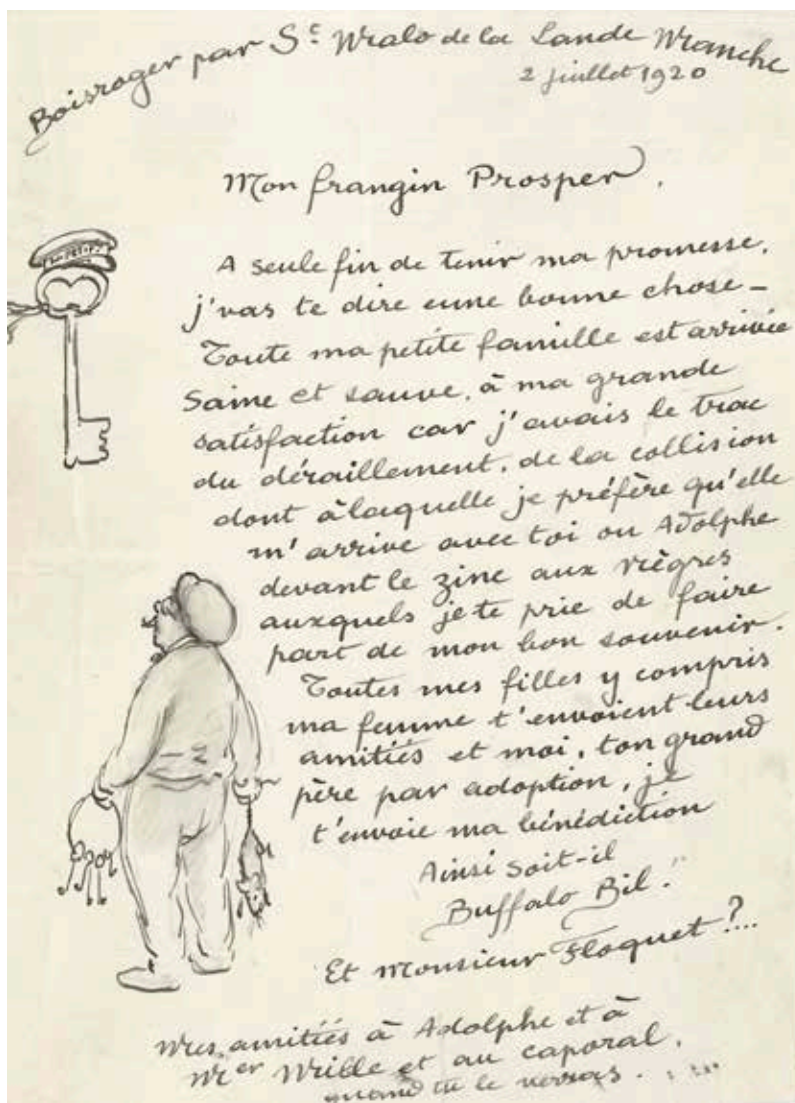 Boisroger par St Malo de la Lande Manche
2 juillet 1920
Mon frangin Prosper,
A seule fin de tenir ma promesse,
j'vas te dire eune bonne chose –
Toute ma petite famille est arrivée
saine et sauve, à ma grande
satisfaction car j'avais le trac
du déraillement, de la collision
dont à laquelle je préfère qu'elle
m'arrive avec toi ou Adolphe
devant le zinc aux nègres
auxquels je te prie de faire
part de mon bon souvenir.
Toutes mes filles y compris
ma femme t'envoient leurs
amitiés et moi, ton grand
père par adoption, je
t'envoie ma bénédiction
Ainsi soit-il
Buffalo Bil!
Et Monsieur Floquet?...
Mes amitiés à Adolphe et à
Mille et au caporal,
quand tu le verras.